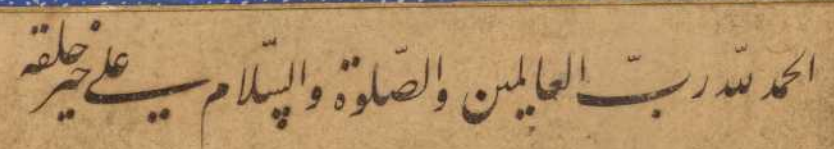 الحمد لله رب العالمين والصلوة والسلام على خير خلقه